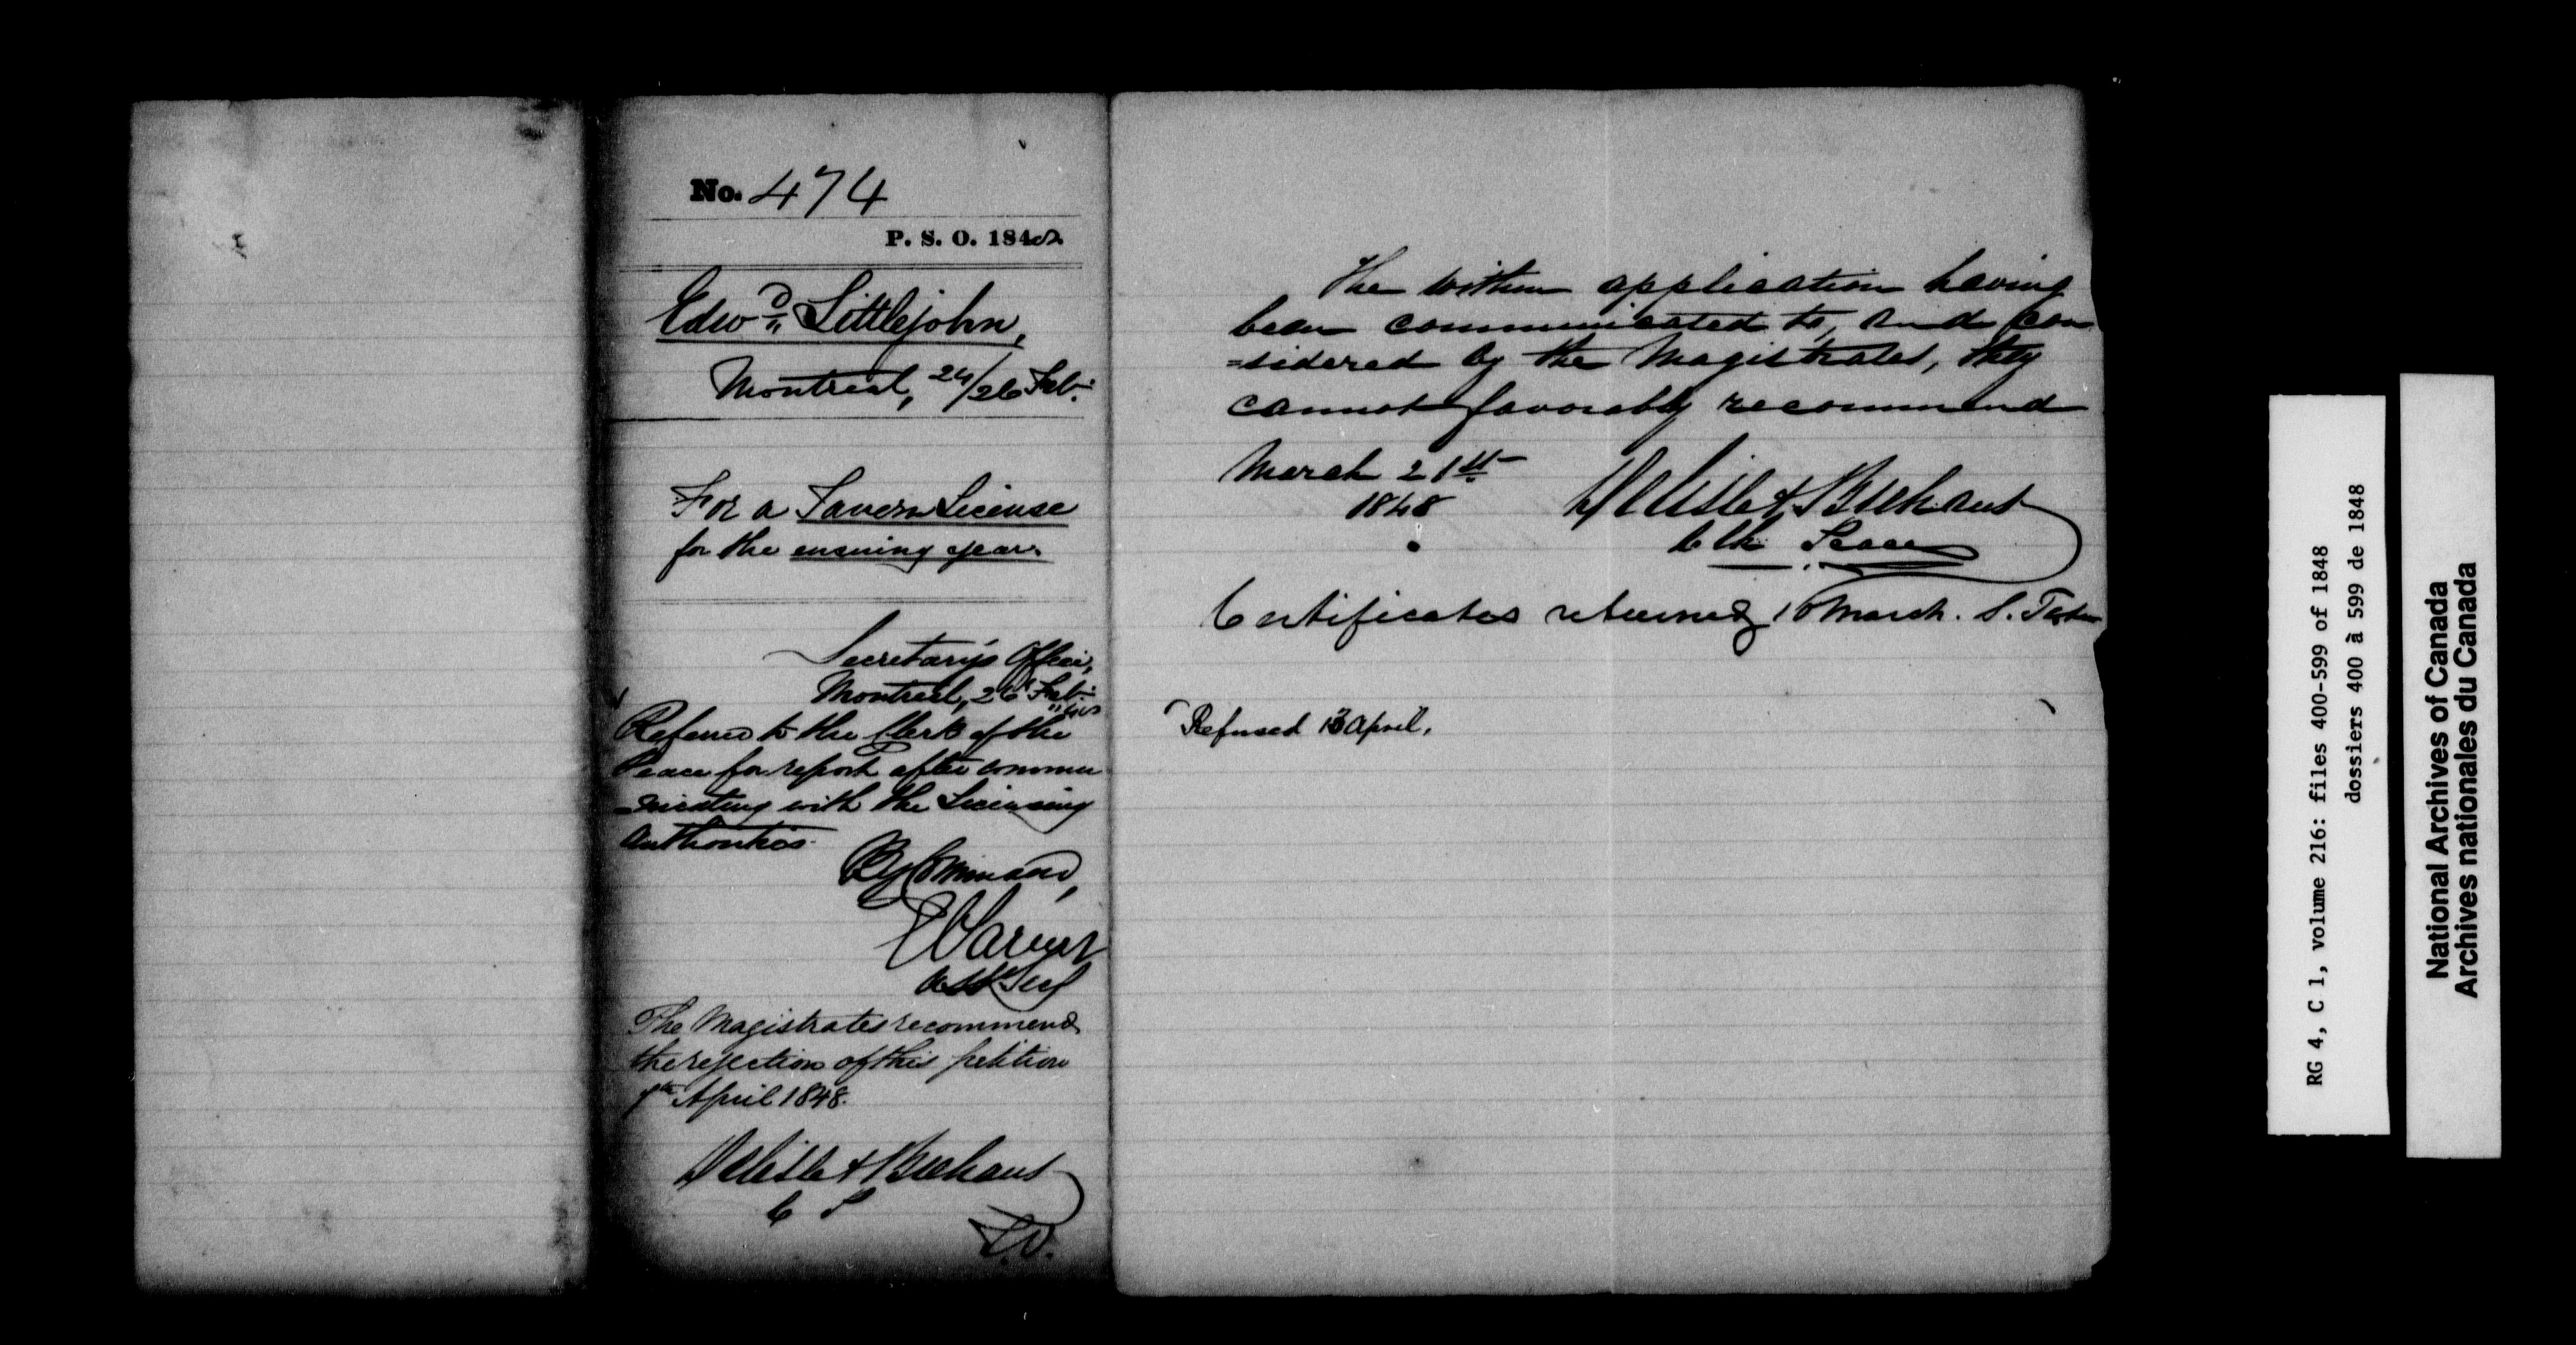 No. 474
P. S. O. 1848
Edwd Littlejohn,
Montreal, 24/26 Feb:
For a Tavern License
for the ensuing year.
Secretary's Office,
Montreal, 26 Feb:
Referred to the Clerk of the
Peace for report after commu
=nicating with the Licensing
Authorities.
By Command,
Asst Secy
The Magistrates recommend
the rejection of this petition
7th April 1848.
Delisle & Brehaut
C P
The within application having
been communicated to, and con
=sidered by the Magistrates, they
cannot favorably recommend
March 21st
1848
Delisle & Brehaut
Clk Peace
Certificates returned 10 March.
Refused 13 April.
RG 4, C 1, volume 216: files 400-599 of 1848
dossiers 400 à 599 de 1848
National Archives of Canada
Archives nationales du Canada